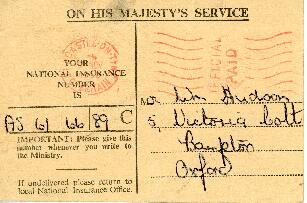 ON HIS MAJESTY'S SERVICE
YOUR
NATIONAL INSURANCE
NUMBER
IS
AS 61 66 89 C
IMPORTANT: Please give this
number whenever you write to
the Ministry.
If undelivered please return to
local National Insurance Office.
OFFICIAL
PAID
Mr Wm Hudson
5, Victoria Cott
Bampton
Oxford